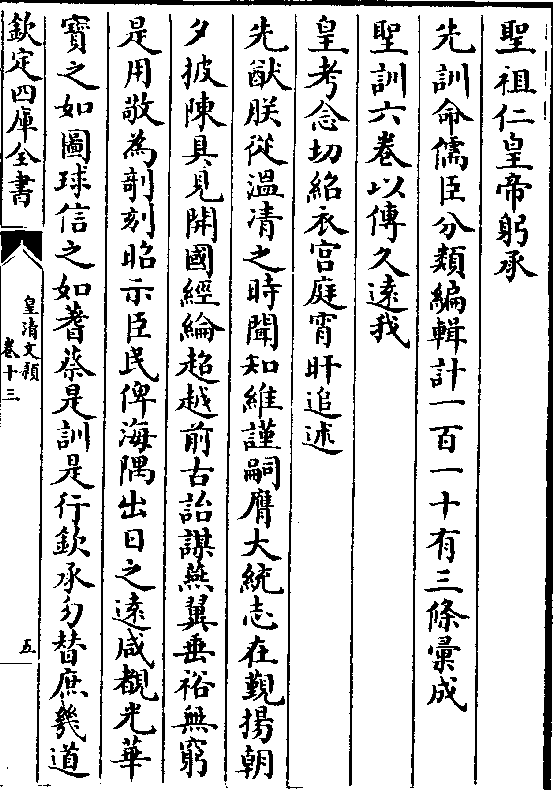 聖祖仁皇帝躬承
先訓命儒臣分類編輯計一百一十有三條彙成
聖訓六卷以傳久遠我
皇考念切紹衣宫庭宵旰追述
先猷朕從温凊之時聞知維謹嗣膺大統志在覲揚朝
夕披陳具見開國經綸超越前古詒謀燕翼垂裕無窮
是用敬為剞刻昭示臣民俾海隅出日之遠咸覩光華
寳之如圖球信之如蓍蔡是訓是行欽承勿替庶幾道
欽定四庫全書
皇清文頴
卷十三
五